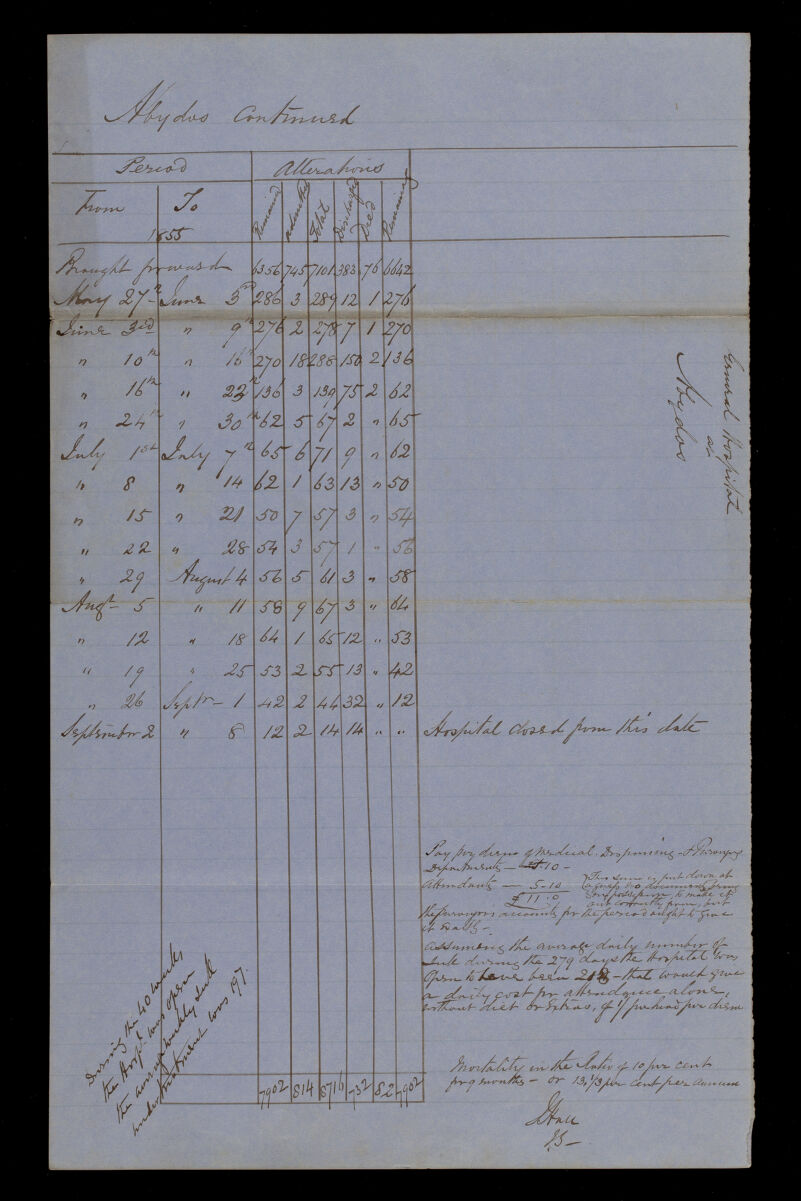 Abydos Continued
Period Alterations
From To Remained Admitted Total Discharged Died Remaining
1855
Brought forward 6356 745 7101 383 76 6642
May 27th June 3d 286 3 289 12 1 276
June 3rd " 9th 276 2 278 7 1 270
" 10th " 16th 270 18 288 150 2 136
" 16th " 22nd 136 3 139 75 2 62
" 24th " 30th 62 5 67 2 " 65
July 1st July 7th 65 6 71 9 " 62
" 8 " 14 62 1 63 13 " 50
" 15 " 21 50 7 57 3 " 54
" 22 " 28 54 3 57 1 " 56
" 29 August 4 56 5 61 3 " 58
Augt 5 " 11 58 9 67 3 " 64
" 12 " 18 64 1 65 12 " 53
" 19 " 25 53 2 55 13 " 42
" 26 Septr 1 42 2 44 32 " 12
September 2 " 8 12 2 14 14 " " Hospital closed from this date
Pay per diem of Medical. Dispensing & Purveying
Departments — 10 —
Attendants — 5-10
£ 11-0
This sum is put down at
a guess no documents being
in my possession to make it
out correctly from, but
the Purveyors accounts for the period ought to give
it Exactly —
Assuming the average daily number of
Sick during the 279 days the Hospital was
Open to have been 218 — that would give
a daily cost for attendance alone,
without diet or Extras, of 1/ per head per diem
Mortality in the Ratio of 10 per cent
for 9 months — or 13 1/3 per cent per annum
7902 814 8716 732 82 7902
J Hall
IG —
During the 40 weeks
the Hospl was open
the average weekly sick
under treatment was 197.
General Hospital
at
Abydos